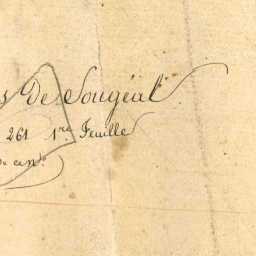 s De Sougéal
261 1.re Feuille